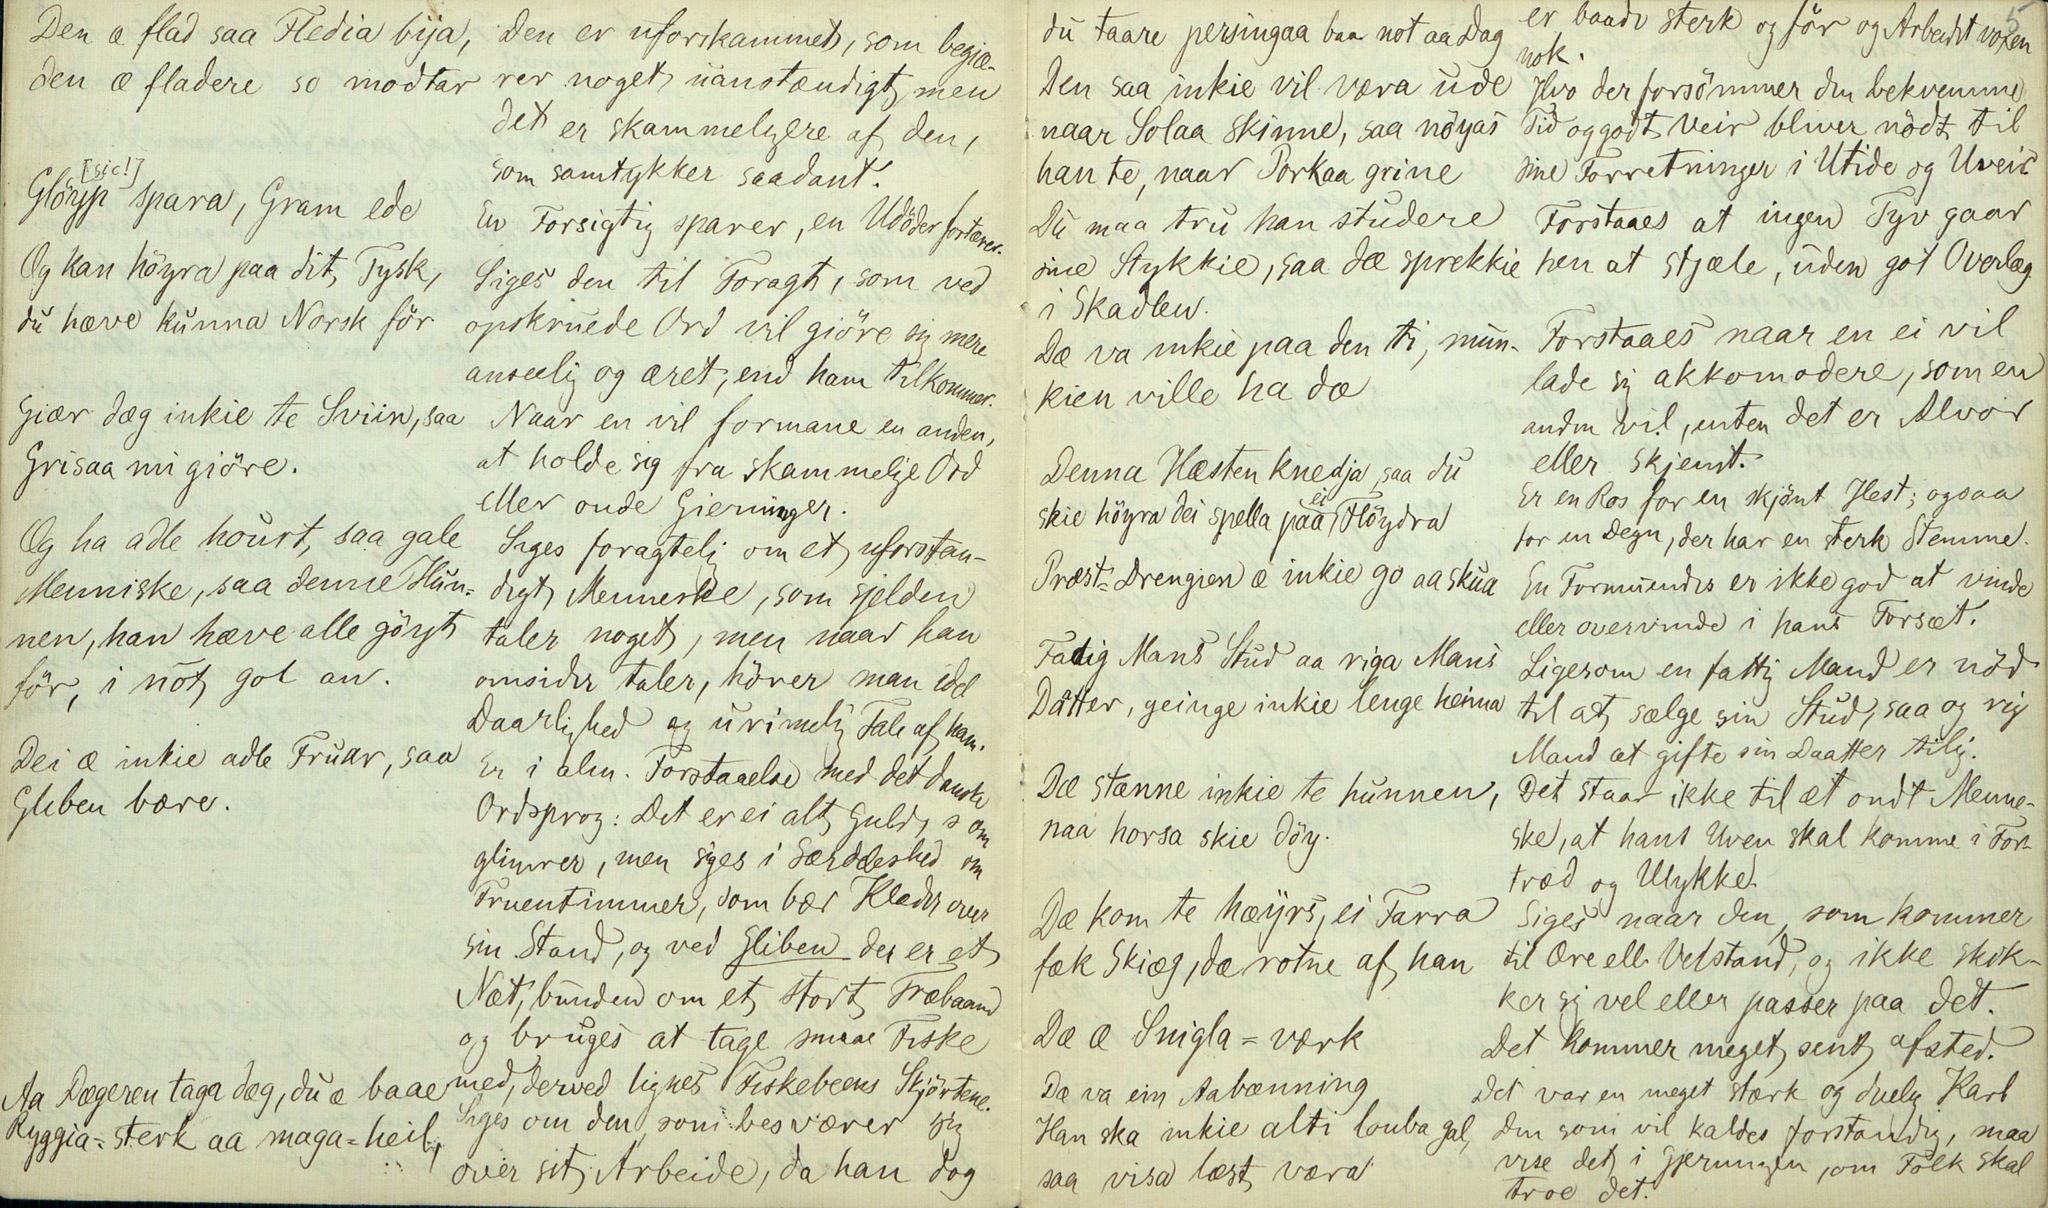 Den æ flad saa Fledia bija,
den æ fladere so modtar
[sic!]
Glöypp spara, Gram ede
Og kan höyra paa dit Tysk,
du hæve kunna Norsk för
Giær dæg inkie te Sviin, saa
Grisaa mi giöre.
Og ha adle hourt, saa gale
Menniske, saa denne Hun-
nen, han hæve alle göyt
för, i nöt gol an.
Dei æ inkie adle Fruar, saa
Gliben bære.
Aa Dægeren taga dæg, du æ baae
Ryggia-sterk aa maga-heil,
Den er uforskammet, som begiæ-
rer noget uanstændigt, men
det er skammeligere af den,
som samtykker saadant.
En Forsigtig sparer, en Udöder fortærer.
Siges den til Foragt, som ved
opskruede Ord vil giöre sig mere
anseelig og æret, end ham tilkommer.
Naar en vil formane en anden,
at holde sig fra skammelige Ord
eller onde Gierninger.
Siges foragtelig om et uforstan-
digt Menneske, som sjelden
taler noget, men naar han
omsider taler, hörer man idel
Daarlighed og urimelig Tale af ham.
Er i alm. Forstaaelse med det danske
Ordsprog: Det er ei alt Guld, som
glimrer, men siges i Særdeleshed om
Fruentimmer, som bær Klæder over
sin Stand, og ved Gliben der er et
Næt, bunden om et stort Træbaand
og bruges at tage smaae Fiske
med, derved lignes Fiskebeens Skjörtene.
Siges om den som besværer sig
over sit Arbeide, da han dog
du taare persingaa baa not aa Dag
Den saa inkie vil væra ude
naar Solaa skinne, saa nöyas
han te, naar Porkaa grine
Du maa tru han studere
sine Stykkie, saa dæ sprekkie
i Skadlen.
Dæ va inkie paa den ti, mun-
kien ville ha dæ
Denna Hæsten knedja saa du
skie höyra dei spella paa ei Flöydra
Præst-Drengien æ inkie go aa skua
Fatig Mans Stud aa riga Mans
Datter, geinge inkie lenge heima
Dæ stænne inkie te hunnen,
naa horsa skie döy.
Dæ kom te hæyrs, ei Farra
fæk Skiæg, dæ rotne af han
Dæ æ Snigla-værk
Dæ va ein Aabænning
Han ska inkie alti louba gal,
saa visa læst væra
5
er baade sterk og för og Arbeidet voxen
nok.
Hvo der forsömmer den bekvemme
Tid og godt Veir bliver nödt til
sine Forretninger i Utide og Uveir
Forstaaes at ingen Tyv gaar
hen at stjæle, uden got Overlæg
Forstaaes naar en ei vil
lade sig akkomodere, som en
anden vil, enten det er Alvor
eller Skjemt.
Er en Ros for en skjönt Hest; ogsaa
for en Degn, der har en sterk Stemme.
En Formuendes er ikke god at vinde
eller overvinde i hans Forsæt.
Ligesom en fattig Mand er nöd
til at sælge sin Stud, saa og rig
Mand at gifte sin Daatter tilig.
Det staar ikke til æt ondt Menne-
ske, at hans Uven skal komme i For-
træd og Ulykke.
Siges naar den, som kommer
til Ære ell. Velstand, og ikke skik-
ker sig vel eller passer paa det.
Det kommer meget sent afsted.
Det var en meget stærk og duelig Karl
Den som vil kaldes forstandig, maa
vise det i Gjerningen, om Folk skal
troe det.